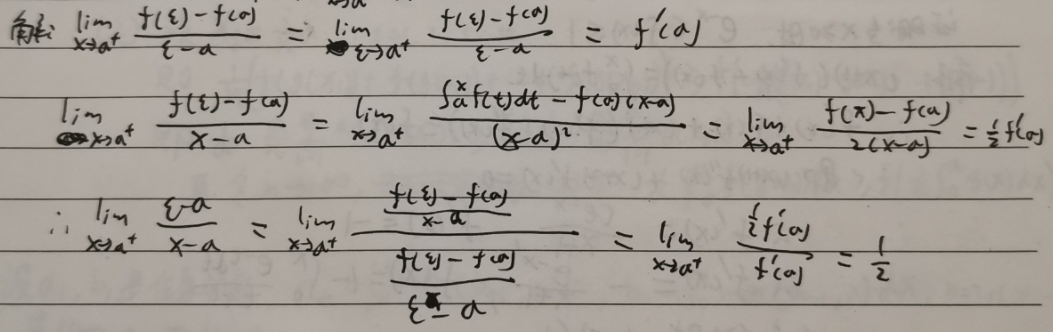 解: lim_{x→a⁺} (f(ξ)-f(a))/(ξ-a) = lim_{ξ→a⁺} (f(ξ)-f(a))/(ξ-a) = f'(a)
lim_{x→a⁺} (f(ξ)-f(a))/(x-a) = lim_{x→a⁺} (∫_a^x f(t)dt - f(a)(x-a))/(x-a)² = lim_{x→a⁺} (f(x)-f(a))/(2(x-a)) = ½f'(a)
∴ lim_{x→a⁺} (ξ-a)/(x-a) = lim_{x→a⁺} ((f(ξ)-f(a))/(x-a))/((f(ξ)-f(a))/(ξ-a)) = lim_{x→a⁺} (½f'(a))/(f'(a)) = ½